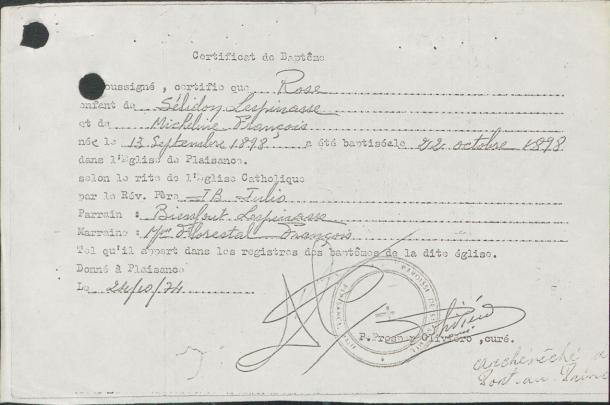 Certificat de Baptême
soussigné, certifie que Rose
enfant de Sélidon Lespinasse
et de Micheline François
née le 13 Septembre 1898, a été baptisée le 22 octobre 1898
dans l'Eglise de Plaisance.
selon le rite de l'Eglise Catholique
par le Rév. Père JB Julio
Parrain : Lespinasse
Marraine : Mme Florestal François
Tel qu'il appert dans les registres des baptêmes de la dite église.
Donné à Plaisance
Le 24/10/74
P. Prosper Oliviéro, curé.
archevêché de
Port-au-Prince